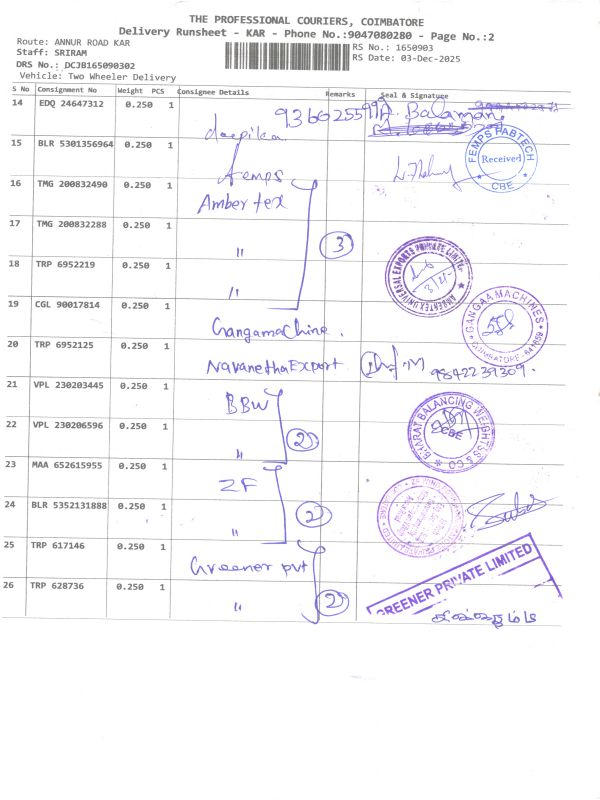 THE PROFESSIONAL COURIERS, COIMBATORE
Delivery Runsheet - KAR - Phone No.:9047080280 - Page No.:2
Route: ANNUR ROAD KAR
RS No.: 1650903
Staff: SRIRAM
RS Date: 03-Dec-2025
DRS No.: DCJB165090302
Vehicle: Two Wheeler Delivery
S No Consignment No Weight PCS Consignee Details Remarks Seal & Signature
14 EDQ 24647312 0.250 1 deepika A. Balaman
15 BLR 5301356964 0.250 1 Femps
FEMPS FABTECH
Received
CBE
16 TMG 200832490 0.250 1 Amber tex
17 TMG 200832288 0.250 1 " 3
18 TRP 6952219 0.250 1 "
AMBERTEX UNIVERSAL EXPORTS PRIVATE LIMITED
19 CGL 90017814 0.250 1 Gangamachine.
GANGAA MACHINES
COIMBATORE - 641659
20 TRP 6952125 0.250 1 Navanetha Export 9842239309.
21 VPL 230203445 0.250 1 BBW
22 VPL 230206596 0.250 1 " 2
BHARAT BALANCING WEIGHTSS & CO
CBE
23 MAA 652615955 0.250 1 ZF
24 BLR 5352131888 0.250 1 " 2
25 TRP 617146 0.250 1 Greener pvt
26 TRP 628736 0.250 1 " 2
GREENER PRIVATE LIMITED